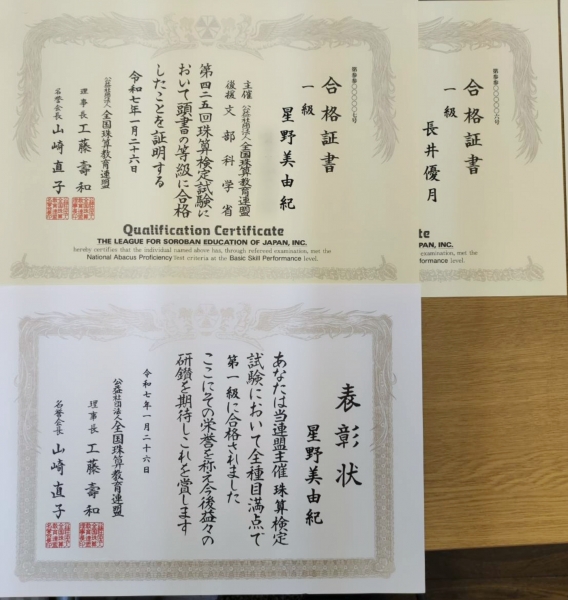 合格証書
一級
星野美由紀
主催 公益社団法人 全国珠算教育連盟
後援 文部科学省
第四二五回珠算検定試験に
おいて頭書の等級に合格
したことを証明する
令和七年一月二十六日
公益社団法人 全国珠算教育連盟
理事長 工藤壽和
名誉会長 山崎直子
Qualification Certificate
THE LEAGUE FOR SOROBAN EDUCATION OF JAPAN, INC.
hereby certifies that the individual named above has, through referred examination, met the
National Abacus Proficiency test criteria at the Basic Skill Performance level.
合格証書
一級
長井優月
te
PAN, INC.
examination, met the
rformance level.
表彰状
星野美由紀
あなたは当連盟主催珠算検定
試験において全種目満点で
第一級に合格されました
ここにその栄誉を称え今後益々の
研鑽を期待しこれを賞します
令和七年一月二十六日
公益社団法人 全国珠算教育連盟
理事長 工藤壽和
名誉会長 山崎直子